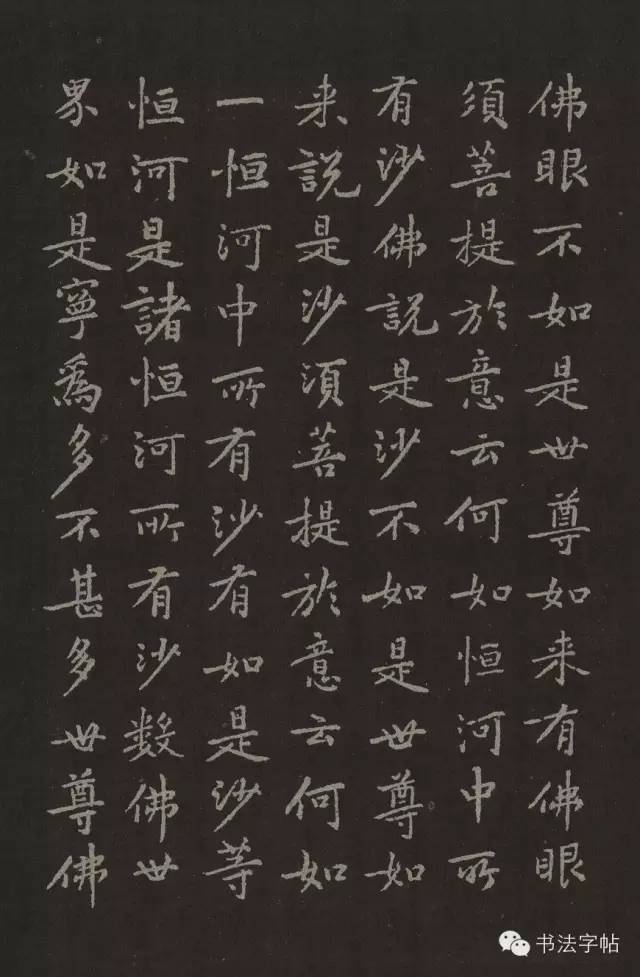 佛眼不如是世尊如来有佛眼
須菩提於意云何如恒河中所
有沙佛說是沙不如是世尊如
来說是沙須菩提於意云何如
一恒河中所有沙有如是沙等
恒河是諸恒河所有沙數佛世
界如是寧爲多不甚多世尊佛
书法字帖